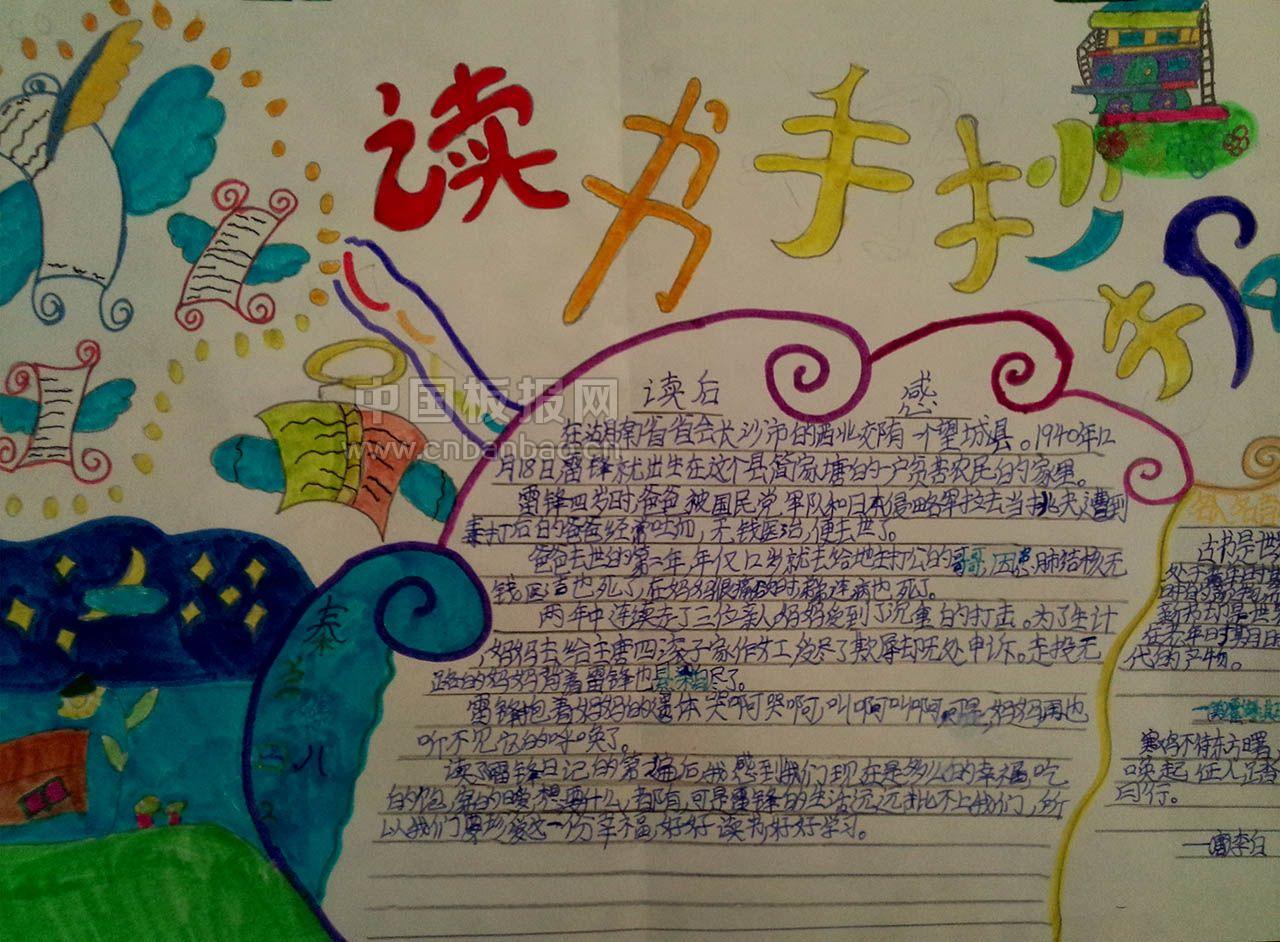 读书手抄
中国板报网
www.cnbanbao.cn
读后感
在湖南省省会长沙市的西北郊有一个望城县。1940年12
月18日雷锋就出生在这个县简家塘的一户贫苦农民的家里。
雷锋四岁时,爸爸被国民党军队和日本侵略军拉去当挑夫,遭到
毒打后的爸爸经常吐血,无钱医治,便去世了。
爸爸去世的第二年,年仅12岁就去给地主打工的哥哥,因患肺结核无
钱医治也死了,在妈妈很痛
连病也死了。
两年中连续走了三位亲人,妈妈受到了沉重的打击。为了生计
,妈妈去给主唐四滚子家作女工,受尽了欺辱却无处申诉。走投无
路的妈妈背着雷锋也悬梁自尽了。
雷锋抱着妈妈的遗体哭啊哭啊,叫啊叫啊,可是,妈妈再也
听不见它的呼唤了。
读了雷锋日记的第一编后,我感到我们现在是多么的幸福,吃
的饱,穿的暖,想要什么,都有,可是雷锋的生活远远比不上我们,所
以我们要珍爱这一份幸福,好好读书,好好学习。
古书是世
在老年时期月
代的产物。
寒鸡不待东方曙
唤起征人
行。
—唐李白